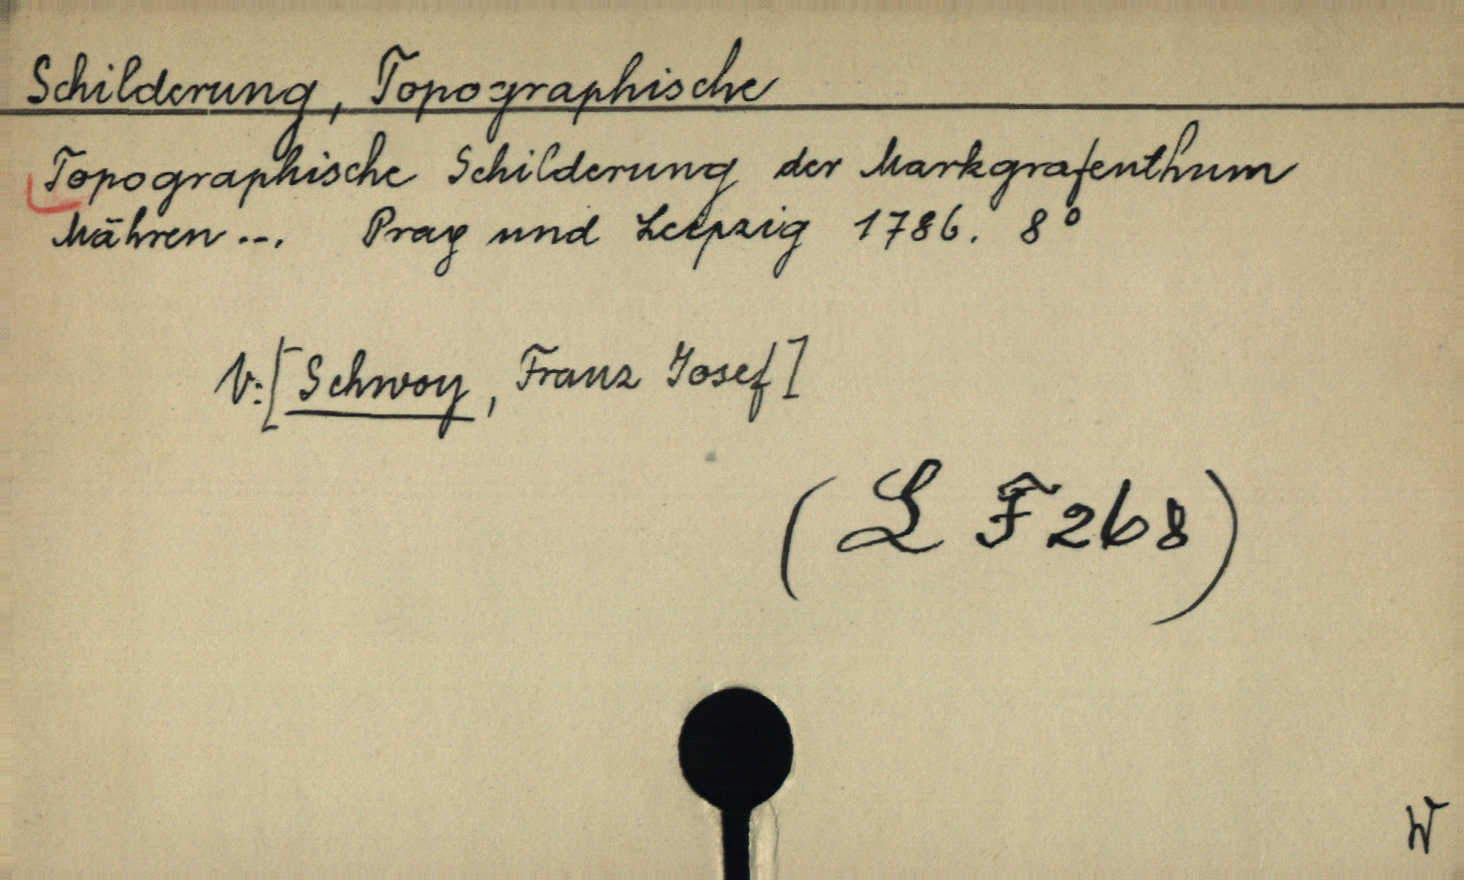 Schilderung, Topographische
Topographische Schilderung der Markgrafenthum
Mähren ... Prag und Leipzig 1786. 8°
V: [Schwoy, Franz Josef]
(L F 268)
W